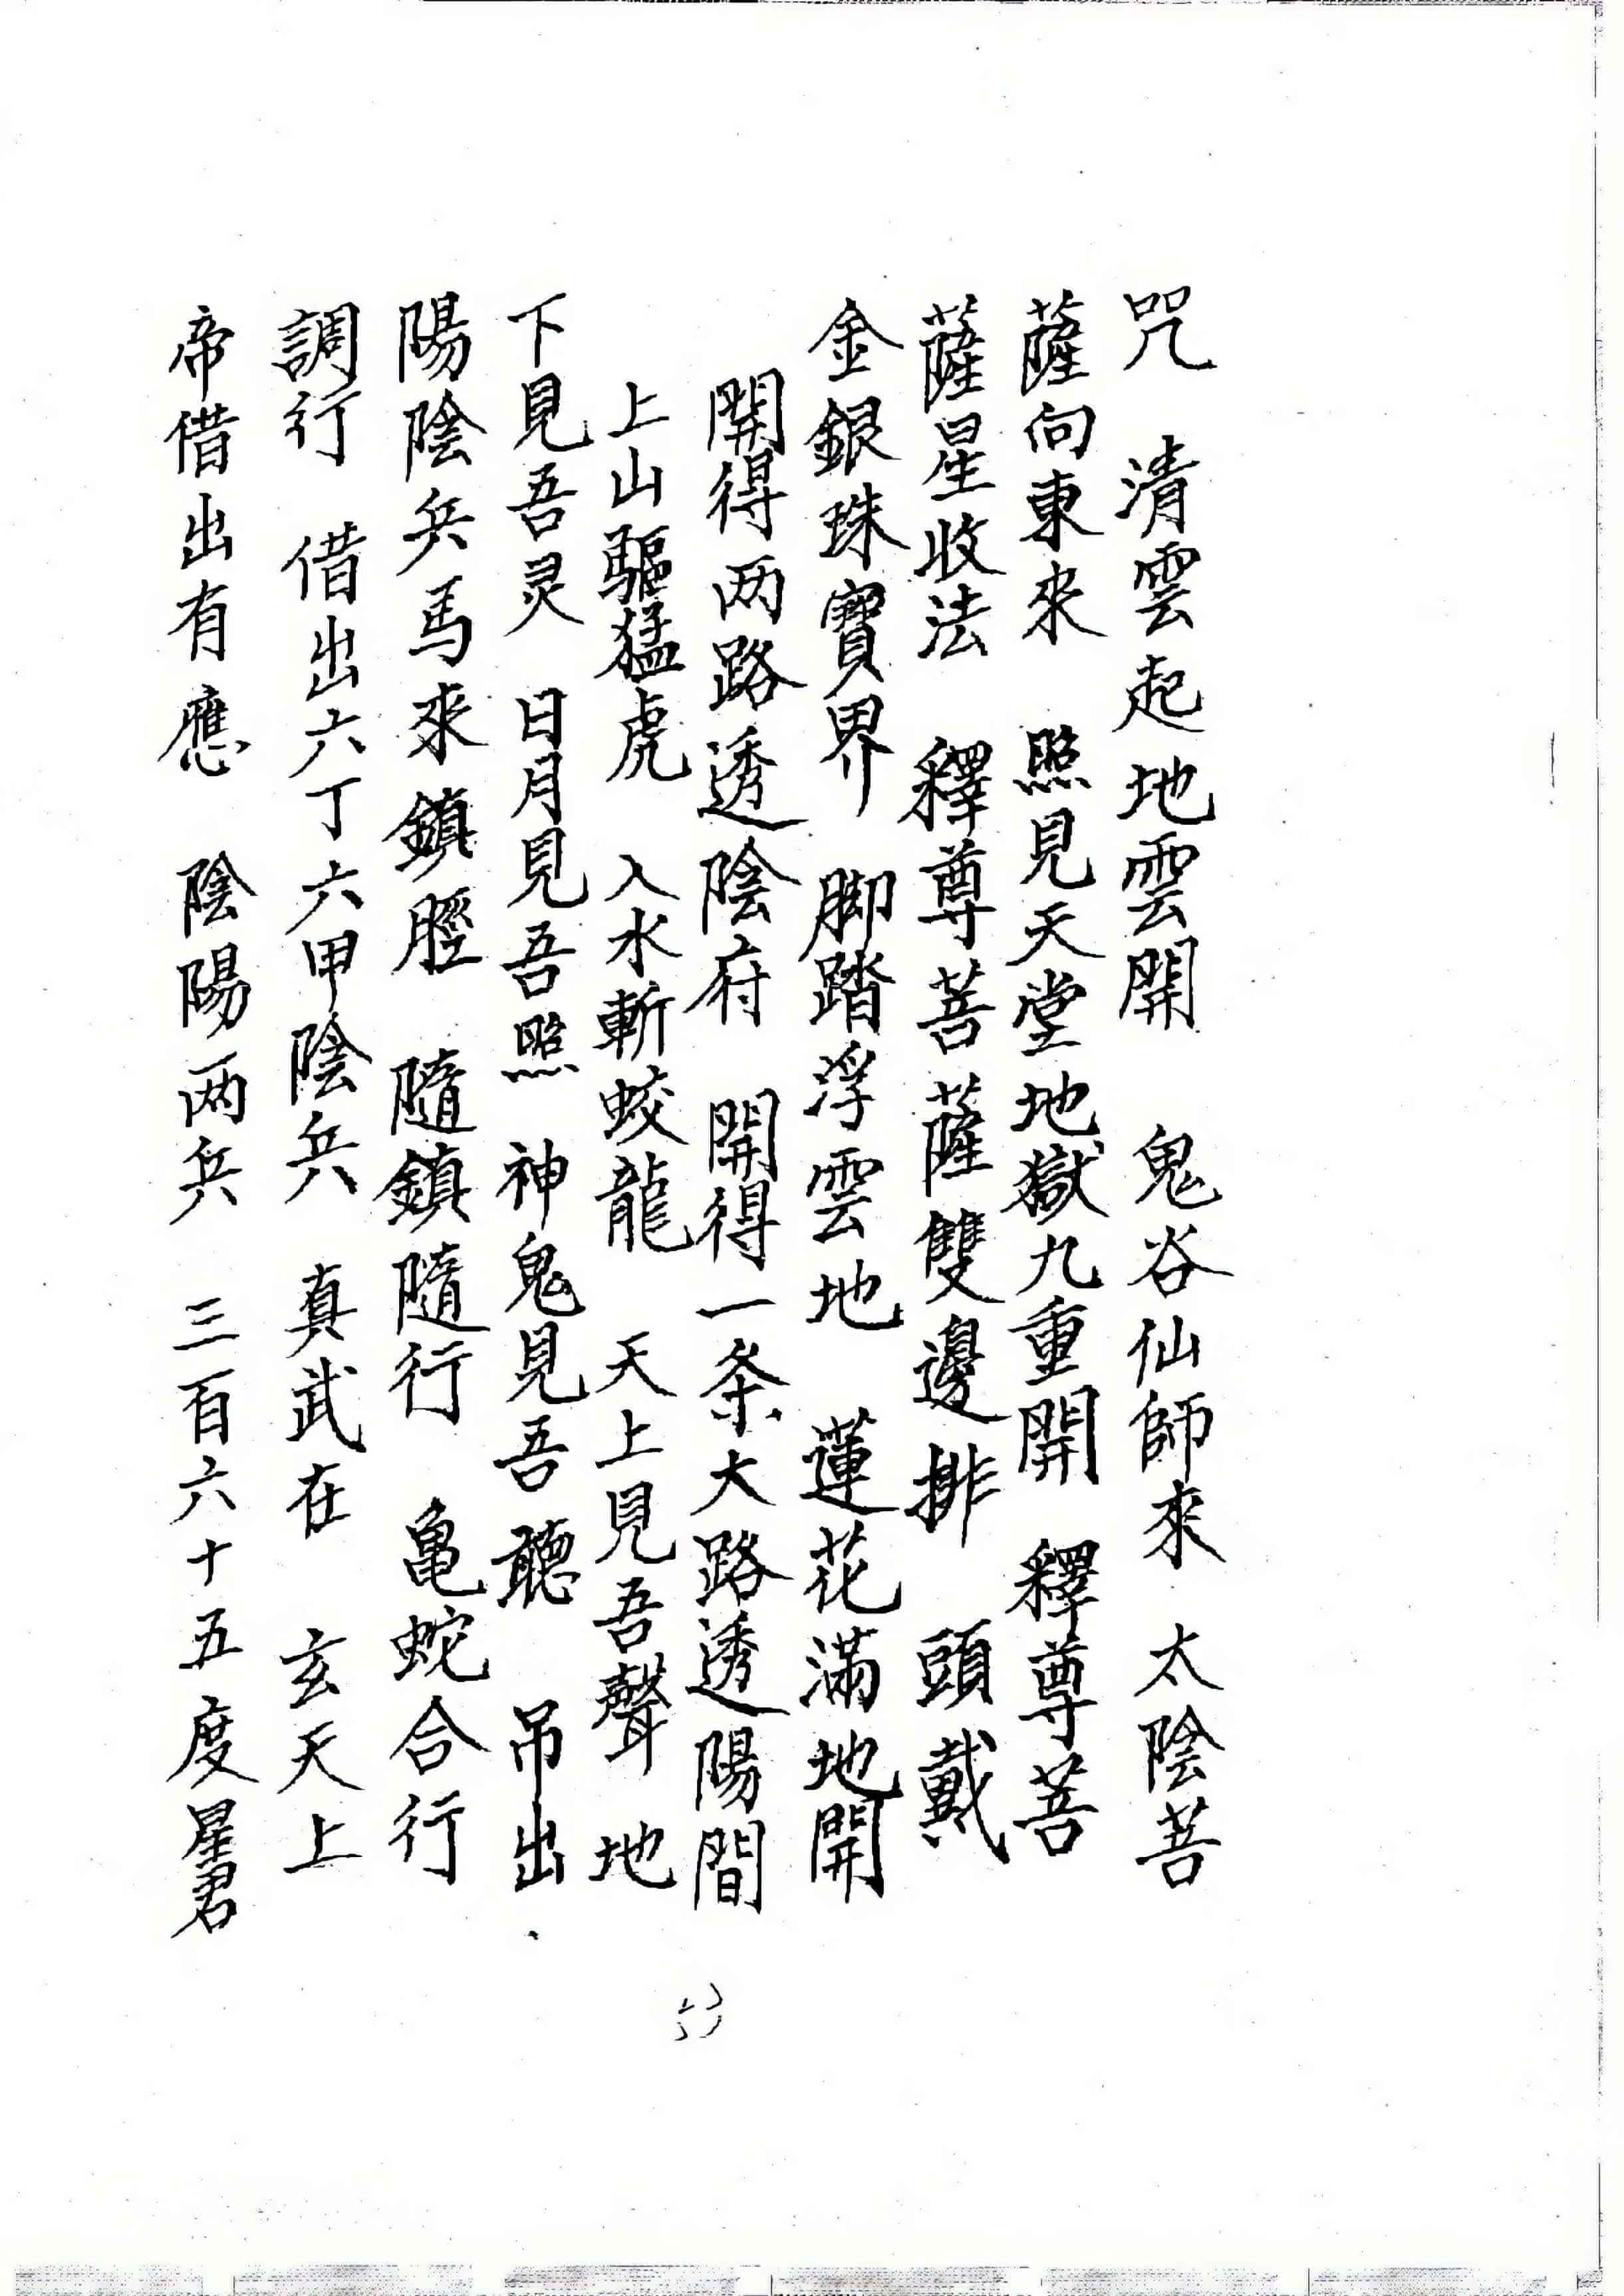 咒 清雲起地雲開 鬼谷仙師來 太陰菩
薩向東來 照見天堂地獄九重開 釋尊菩
薩星收法 釋尊菩薩雙邊排 頭戴
金銀珠寶界 脚踏浮雲地 蓮花滿地開
開得两路透陰府 開得一条大路透陽間
上山驅猛虎 入水斬蛟龍 天上見吾聲 地
下見吾灵 日月見吾照 神鬼見吾聽 吊出
陽陰兵馬來鎮脛 隨鎮隨行 亀蛇合行
調行 借出六丁六甲陰兵 真武在 玄天上
帝借出有應 陰陽两兵 三百六十五度星君
53